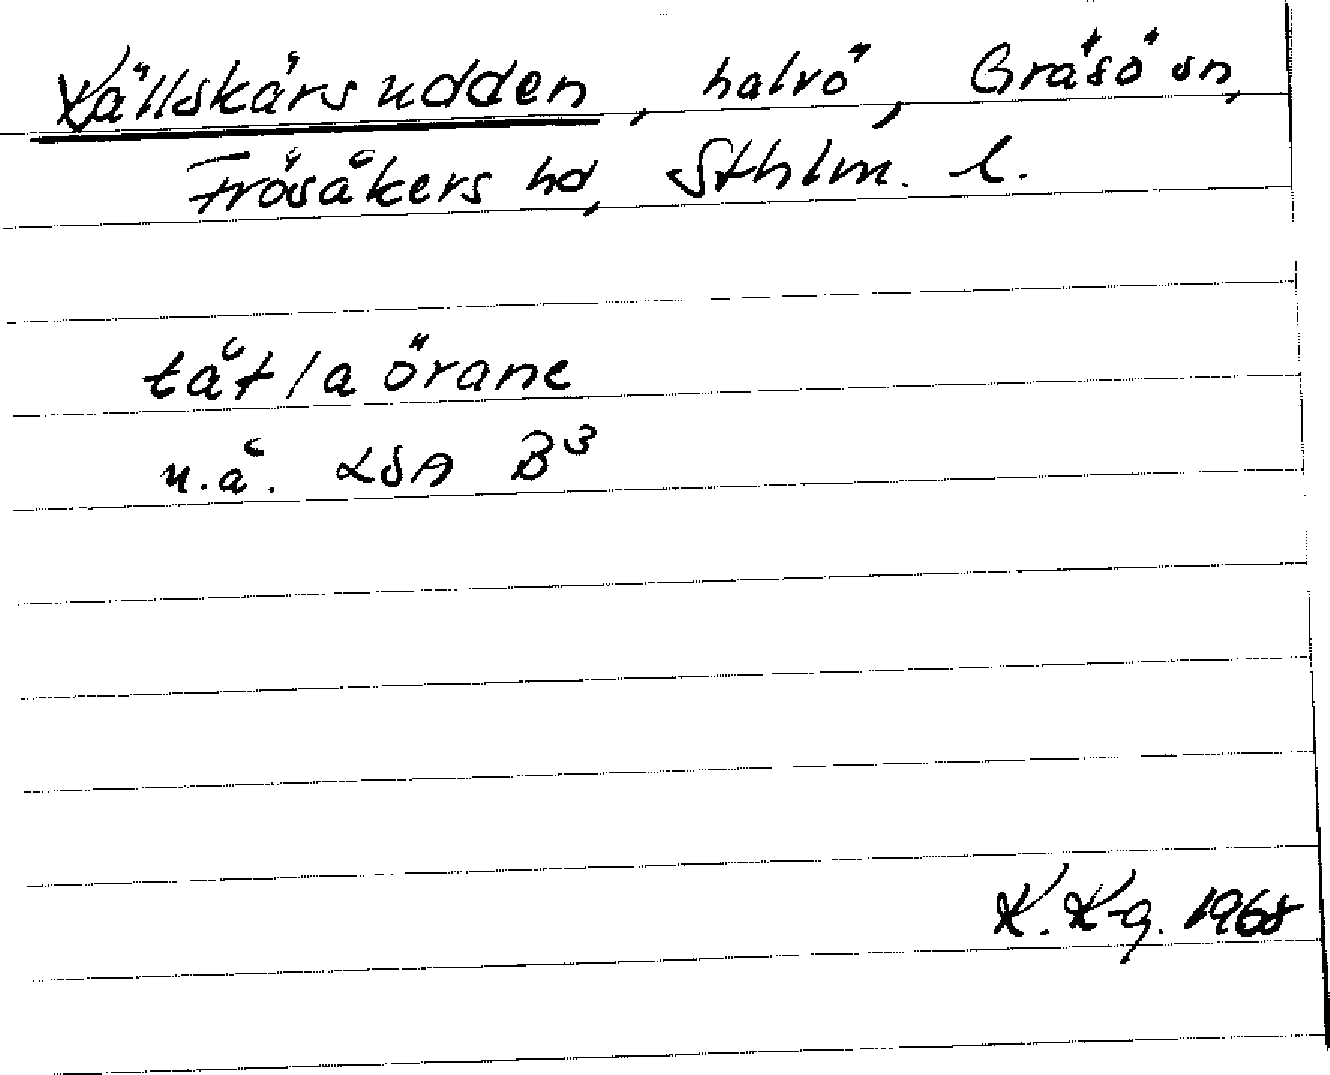 Källskärsudden, halvö, Gräsö sn,
Frösåkers hd, Sthlm. l.
tåt/a örane
u.å. LSA B3
K. K-g. 1968